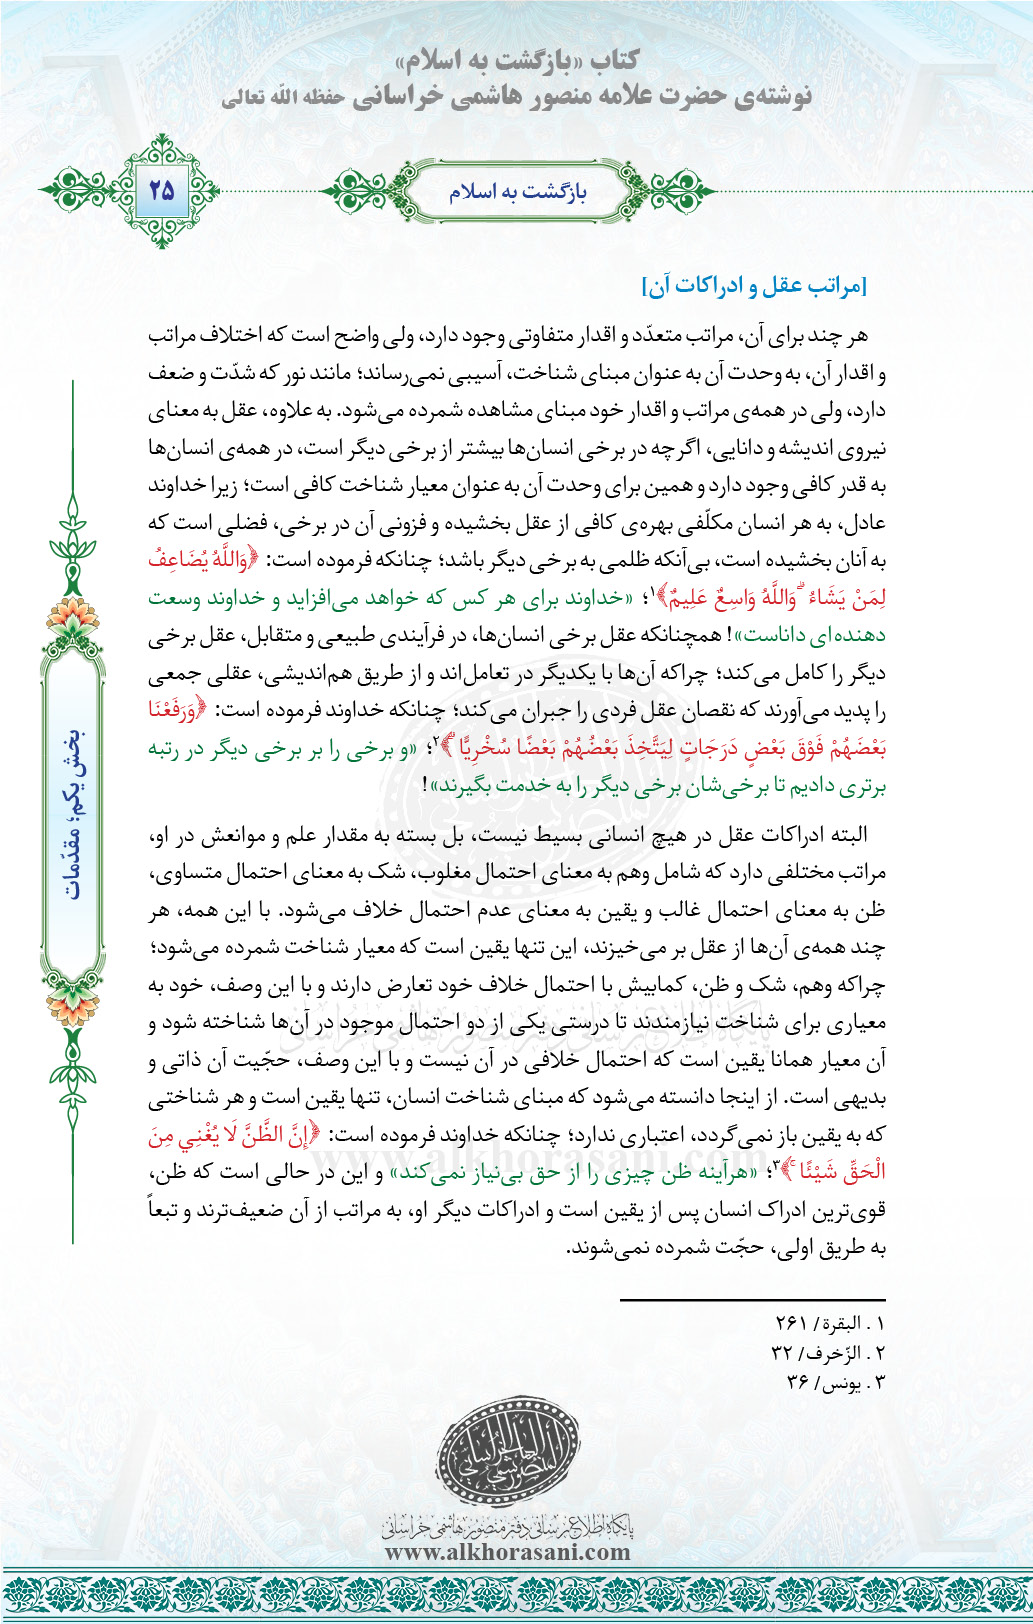 کتاب «بازگشت به اسلام»
نوشته‌ی حضرت علامه منصور هاشمی خراسانی حفظه الله تعالی
بازگشت به اسلام
۲۵
[مراتب عقل و ادراکات آن]
هر چند برای آن، مراتب متعدّد و اقدار متفاوتی وجود دارد، ولی واضح است که اختلاف مراتب
و اقدار آن، به وحدت آن به عنوان مبنای شناخت، آسیبی نمی‌رساند؛ مانند نور که شدّت و ضعف
دارد، ولی در همه‌ی مراتب و اقدار خود مبنای مشاهده شمرده می‌شود. به علاوه، عقل به معنای
نیروی اندیشه و دانایی، اگرچه در برخی انسان‌ها بیشتر از برخی دیگر است، در همه‌ی انسان‌ها
به قدر کافی وجود دارد و همین برای وحدت آن به عنوان معیار شناخت کافی است؛ زیرا خداوند
عادل، به هر انسان مکلّفی بهره‌ی کافی از عقل بخشیده و فزونی آن در برخی، فضلی است که
به آنان بخشیده است، بی‌آنکه ظلمی به برخی دیگر باشد؛ چنانکه فرموده است: ﴿وَاللَّهُ يُضَاعِفُ
لِمَنْ يَشَاءُ ۗ وَاللَّهُ وَاسِعٌ عَلِيمٌ﴾۱؛ «خداوند برای هر کس که خواهد می‌افزاید و خداوند وسعت
دهنده‌ای داناست»! همچنانکه عقل برخی انسان‌ها، در فرآیندی طبیعی و متقابل، عقل برخی
دیگر را کامل می‌کند؛ چراکه آن‌ها با یکدیگر در تعامل‌اند و از طریق هم‌اندیشی، عقلی جمعی
را پدید می‌آورند که نقصان عقل فردی را جبران می‌کند؛ چنانکه خداوند فرموده است: ﴿وَرَفَعْنَا
بَعْضَهُمْ فَوْقَ بَعْضٍ دَرَجَاتٍ لِيَتَّخِذَ بَعْضُهُمْ بَعْضًا سُخْرِيًّا ۗ﴾۲؛ «و برخی را بر برخی دیگر در رتبه
برتری دادیم تا برخی‌شان برخی دیگر را به خدمت بگیرند»!
البته ادراکات عقل در هیچ انسانی بسیط نیست، بل بسته به مقدار علم و موانعش در او،
مراتب مختلفی دارد که شامل وهم به معنای احتمال مغلوب، شک به معنای احتمال متساوی،
ظن به معنای احتمال غالب و یقین به معنای عدم احتمال خلاف می‌شود. با این همه، هر
چند همه‌ی آن‌ها از عقل بر می‌خیزند، این تنها یقین است که معیار شناخت شمرده می‌شود؛
چراکه وهم، شک و ظن، کمابیش با احتمال خلاف خود تعارض دارند و با این وصف، خود به
معیاری برای شناخت نیازمندند تا درستی یکی از دو احتمال موجود در آن‌ها شناخته شود و
آن معیار همانا یقین است که احتمال خلافی در آن نیست و با این وصف، حجّیت آن ذاتی و
بدیهی است. از اینجا دانسته می‌شود که مبنای شناخت انسان، تنها یقین است و هر شناختی
که به یقین باز نمی‌گردد، اعتباری ندارد؛ چنانکه خداوند فرموده است: ﴿إِنَّ الظَّنَّ لَا يُغْنِي مِنَ
الْحَقِّ شَيْئًا ۚ﴾۳؛ «هرآینه ظن چیزی را از حق بی‌نیاز نمی‌کند» و این در حالی است که ظن،
قوی‌ترین ادراک انسان پس از یقین است و ادراکات دیگر او، به مراتب از آن ضعیف‌ترند و تبعاً
به طریق اولی، حجّت شمرده نمی‌شوند.
بخش یکم؛ مقدّمات
۱ . البقرة/ ۲۶۱
۲ . الزّخرف/ ۳۲
۳ . یونس/ ۳۶
پایگاه اطلاع رسانی دفتر منصور هاشمی خراسانی
www.alkhorasani.com